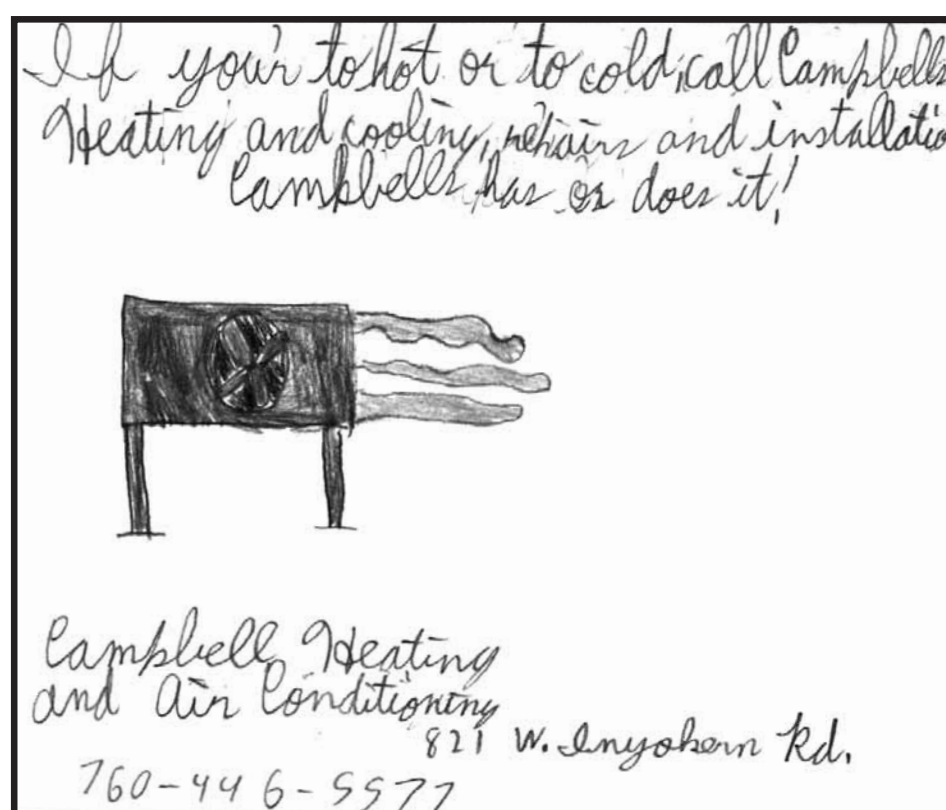 If your to hot or to cold, call Campbells
Heating and cooling, repairs and installatio
Campbells has or does it!
Campbell Heating
and Air Conditioning
821 W. Inyokern Rd.
760-446-5577